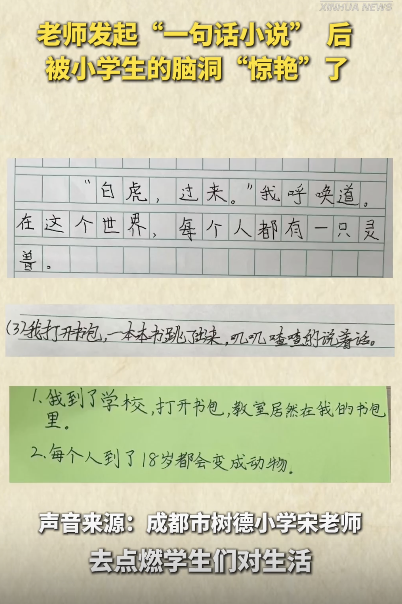 XINHUA NEWS
老师发起“一句话小说” 后
被小学生的脑洞“惊艳”了
“白虎，过来。”我呼唤道。
在这个世界，每个人都有一只灵
兽。
(3)我打开书包，一本本书跳出来，叽叽喳喳的说着话。
1.我到了学校，打开书包，教室居然在我的书包
里。
2.每个人到了18岁都会变成动物。
声音来源：成都市树德小学宋老师
去点燃学生们对生活